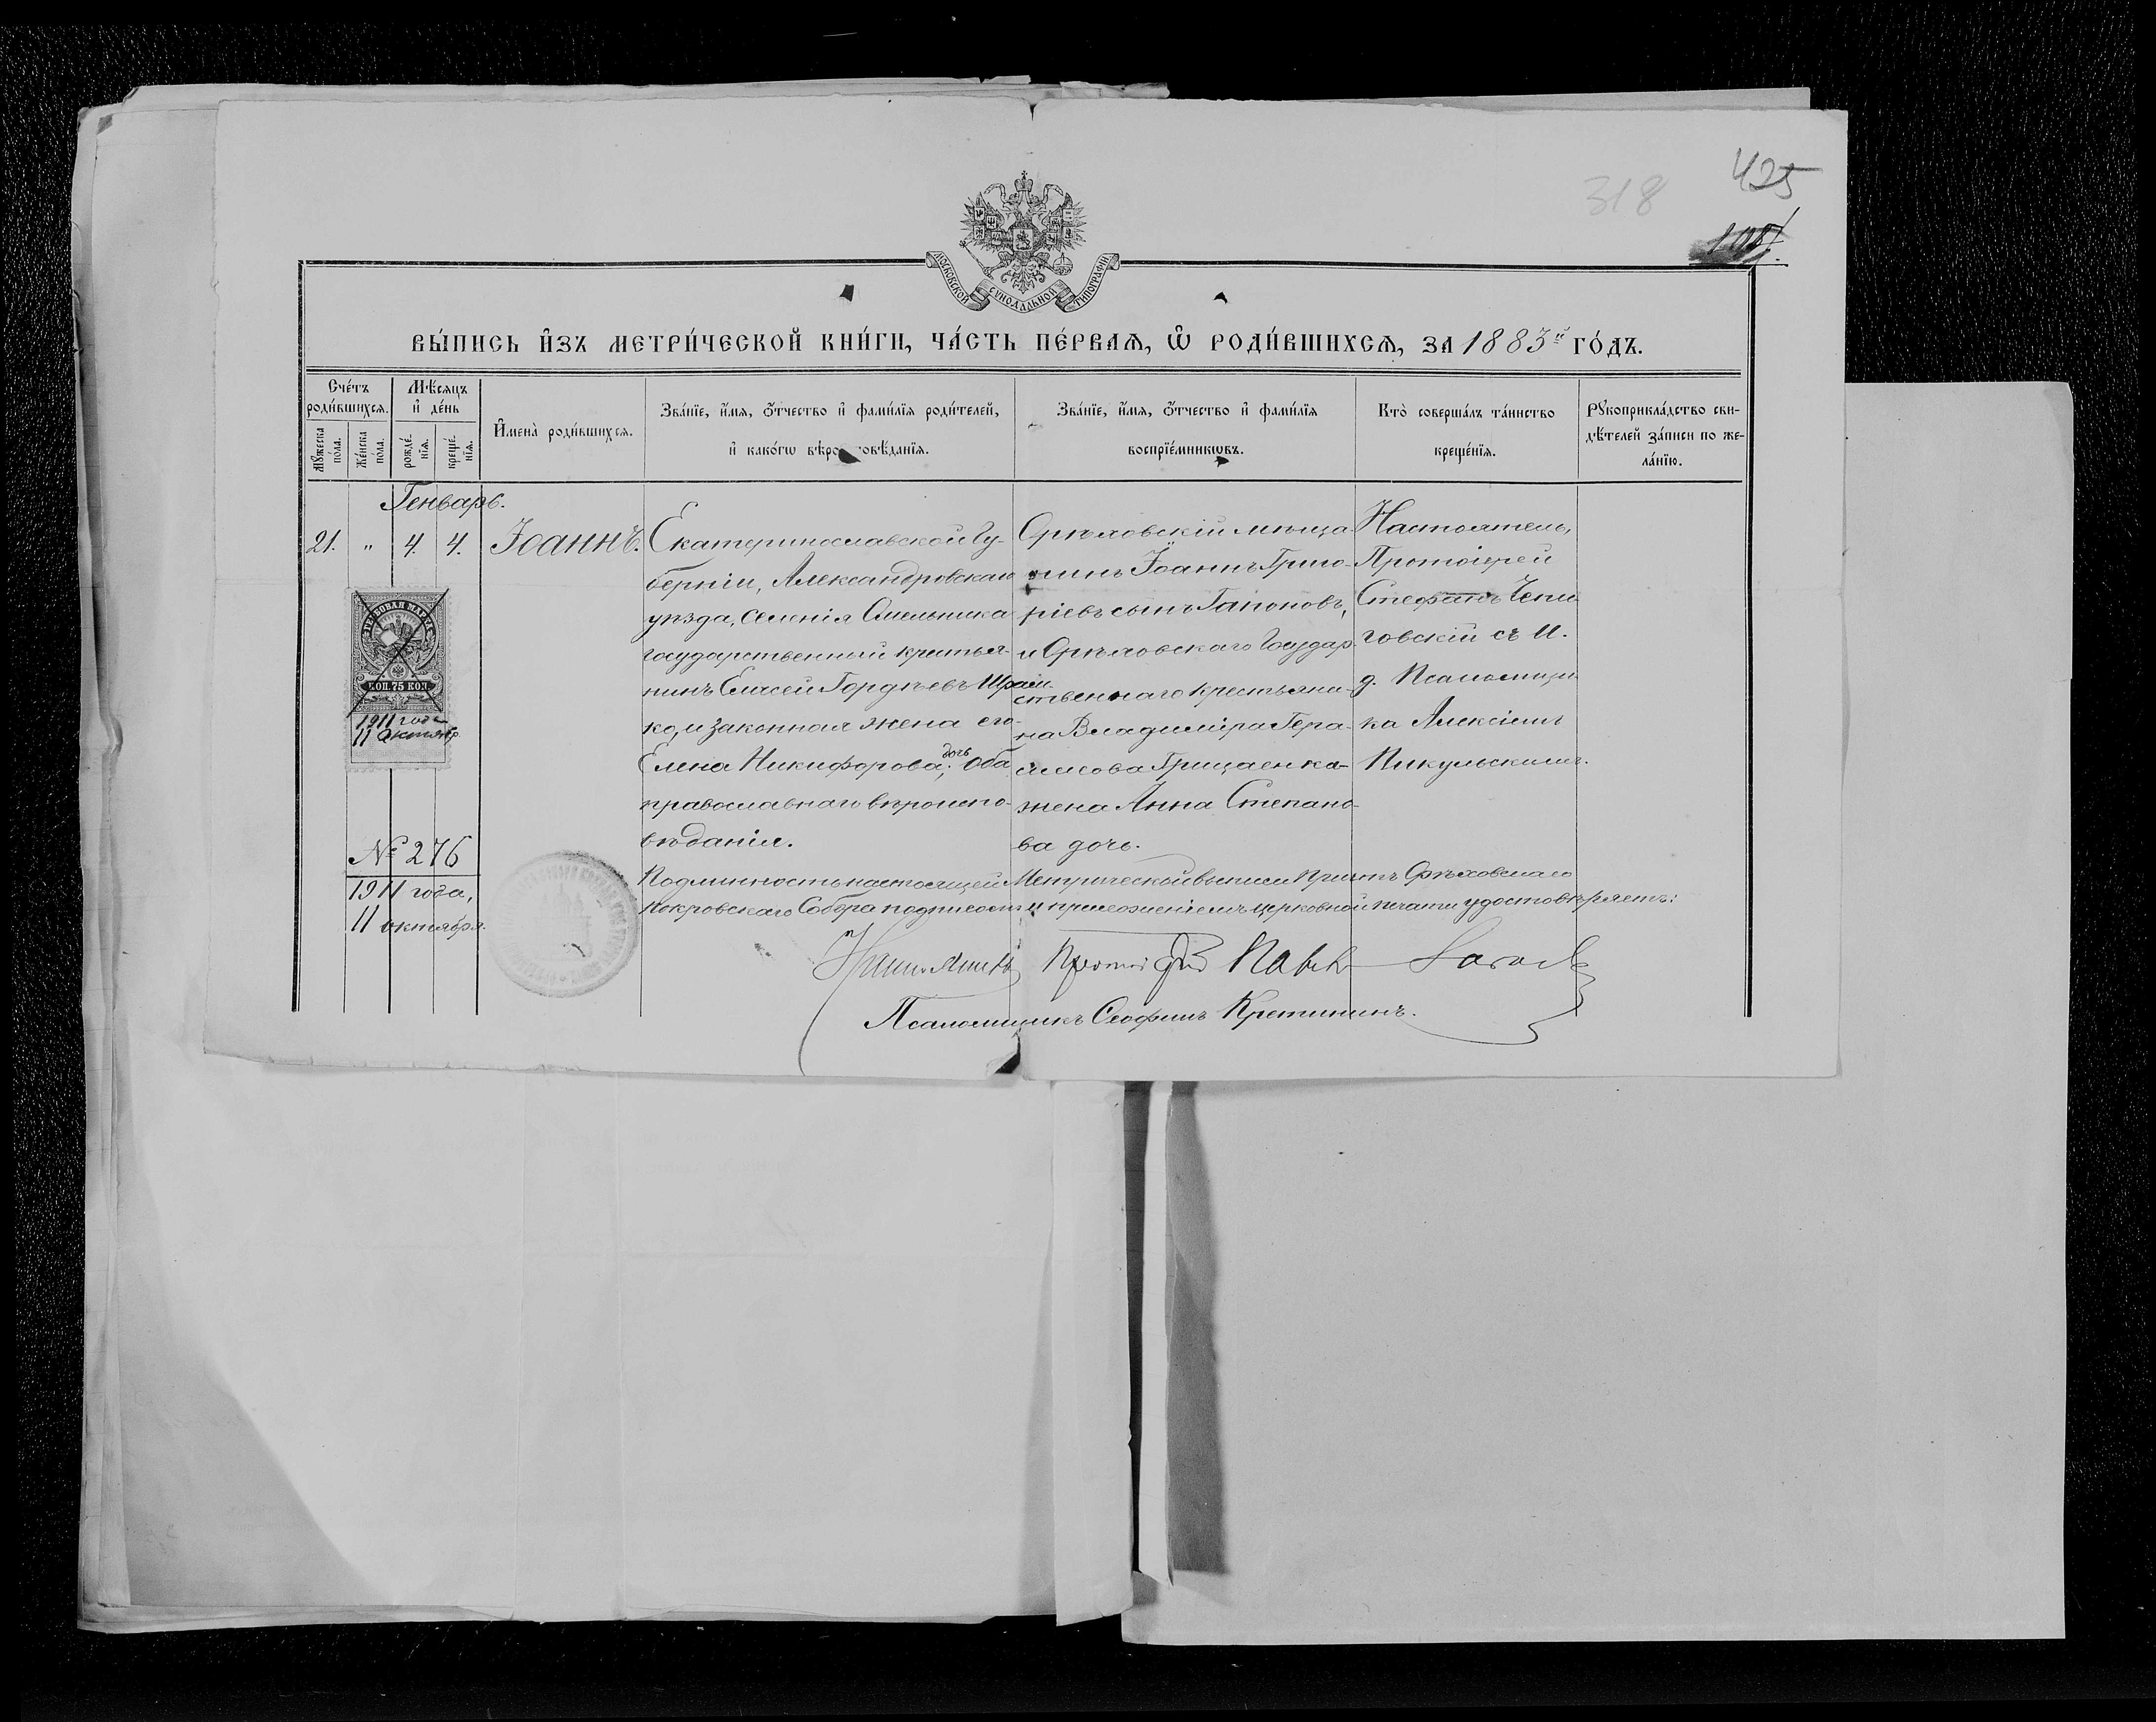 318
425
МОСКОВСКОЙ СѴНОДАЛЬНОЙ ТИПОГРАФІИ
ВЫ́ПИСЬ И҆ЗЪ МЕТРИ́ЧЕСКОЙ КНИ́ГИ, ЧА́СТЬ ПЕ́РВАѦ, Ѡ҆ РОДИ́ВШИХСѦ, ЗА 1883й ГО́ДЪ.
Сче́тъ роди́вшихся.
Мꙋ́жеска по́ла.
Же́нска по́ла.
Мѣ́сяцъ и҆ де́нь
рожде́нїя.
креще́нїя.
И҆мена̀ роди́вшихся.
Зва́нїе, и҆́мя, ѻ҆́тчество и҆ фами́лїя роди́телей,
и҆ како́гѡ вѣроисповѣ́данїя.
Зва́нїе, и҆́мя, ѻ҆́тчество и҆ фами́лїя
воспрїе́мникѡвъ.
Кто̀ соверша́лъ та́инство
креще́нїя.
Рꙋкоприкла́дство сви-
дѣ́телей за́писи по же-
ла́нїю.
Генварь.
21. " 4. 4.
Іоаннъ.
Екатеринославской Гу-
берніи, Александровскаго
уѣзда, селенія Омельника
государственный крестья-
нинъ Елисей Гордѣевъ
ко, и законная жена его
Елена Никифорова дочь; оба
православнаго вѣроиспо-
вѣданія.
Орѣховскій мѣща-
нинъ Іоаннъ Григо-
ріевъ сынъ Гапоновъ,
и Орѣховскаго Государ-
ственнаго крестьяни-
на Владиміра Гера-
симова Грицаенка
жена Анна Степано-
ва дочь.
Настоятель,
Протоіерей
Стефанъ Чепи-
говскій съ И.
д. Псаломщи-
ка Алексіемъ
Никульскимъ.
ГЕРБОВАЯ МАРКА
КОП. 75 КОП.
1911 года
11 октября
№ 276
1911 года,
11 октября.
Подлинность настоящей Метрической выписи Причтъ Орѣховскаго
Покровскаго Собора подписомъ и приложеніемъ церковной печати удостовѣряетъ:
Настоятель Протоіерей Павелъ
Псаломщикъ Ѳеофилъ Кретининъ.